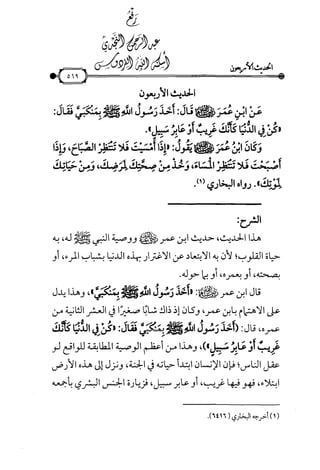 رفع
عبد الرحمن النجدي
أسكنه الله الفردوس
الحديث الأربعون
٥١٩
الحديث الأربعون
عَنْ ابْنِ عُمَرَ ﷺ قَالَ: أَخَذَ رَسُولُ اللهِ ﷺ بِمَنْكِبَيَّ فَقَالَ:
«كُنْ فِي الدُّنْيَا كَأَنَّكَ غَرِيبٌ أَوْ عَابِرُ سَبِيلٍ».
وَكَانَ ابْنُ عُمَرَ ﷺ يَقُولُ: «إِذَا أَمْسَيْتَ فَلَا تَنْتَظِرِ الصَّبَاحَ، وَإِذَا
أَصْبَحْتَ فَلَا تَنْتَظِرِ الْمَسَاءَ، وَخُذْ مِنْ صِحَّتِكَ لِمَرَضِكَ، وَمِنْ حَيَاتِكَ
لِمَوْتِكَ». رواه البخاري (١).
الشرح:
هذا الحديث، حديث ابن عمر ﷺ ووصية النبي ﷺ له، به
حياة القلوب؛ لأن به الابتعاد عن الاغترار بهذه الدنيا بشباب المرء، أو
بصحته، أو بعمره، أو بما حوله.
قال ابن عمر ﷺ: «أَخَذَ رَسُولُ اللهِ ﷺ بِمَنْكِبَيَّ»، وهذا يدل
على الاهتمام بابن عمر، وكان إذ ذاك شابًا صغيرًا في العشر الثانية من
عمره، قال: (أَخَذَ رَسُولُ اللهِ ﷺ بِمَنْكِبَيَّ فَقَالَ: «كُنْ فِي الدُّنْيَا كَأَنَّكَ
غَرِيبٌ أَوْ عَابِرُ سَبِيلٍ»)، وهذا من أعظم الوصية المطابقة للواقع لو
عقل الناس؛ فإن الإنسان ابتدأ حياته في الجنة، ونزل إلى هذه الأرض
ابتلاء، فهو فيها غريب، أو عابر سبيل، فزيارة الجنس البشري بأجمعه
(١) أخرجه البخاري (٦٤١٦).